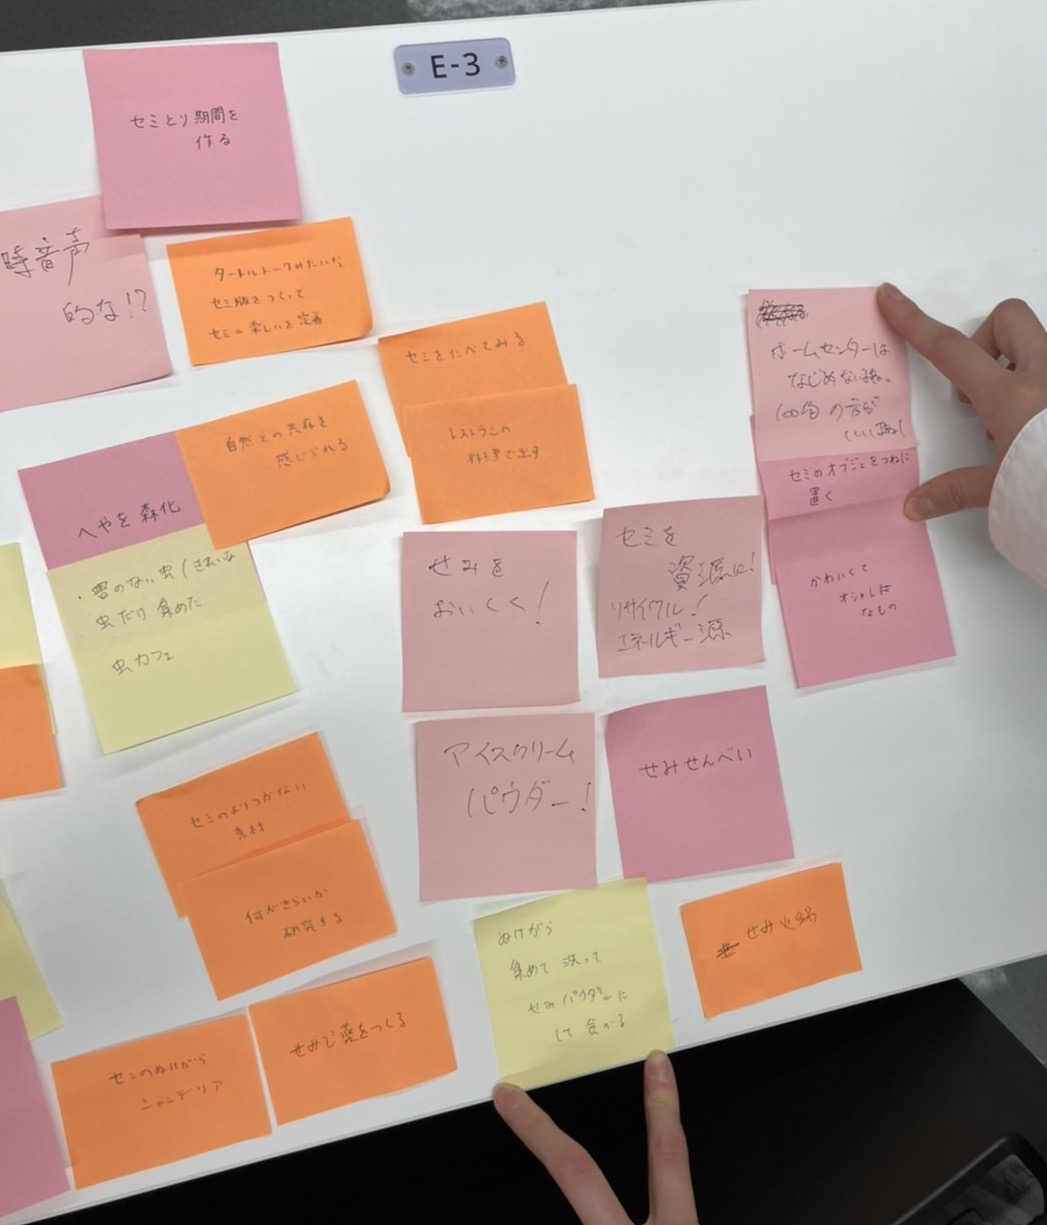 E-3
セミとり期間を
作る
時音声
的な!?
タートルトークみたいな
セミ版をつくって
セミ=楽しいを定着
セミをたべてみる
レストランの
料理で出す
自然との共存を
感じられる
へやを森化
・害のない虫/きれいな
虫だけ集めた
虫カフェ
ホームセンターは
なじめない為。
100均の方が
いい為!
セミのオブジェをつねに
置く
かわいくて
オシャレな
なもの
せみを
おいしく!
セミを
資源に!
リサイクル!
エネルギー源
アイスクリーム
パウダー!
せみせんべい
セミのよりつかない
素材
何がきらいか
研究する
ぬけがら
集めて洗って
せみパウダーに
して食べる
せみ火鍋
せみで薬をつくる
セミのぬけがら
シャンデリア